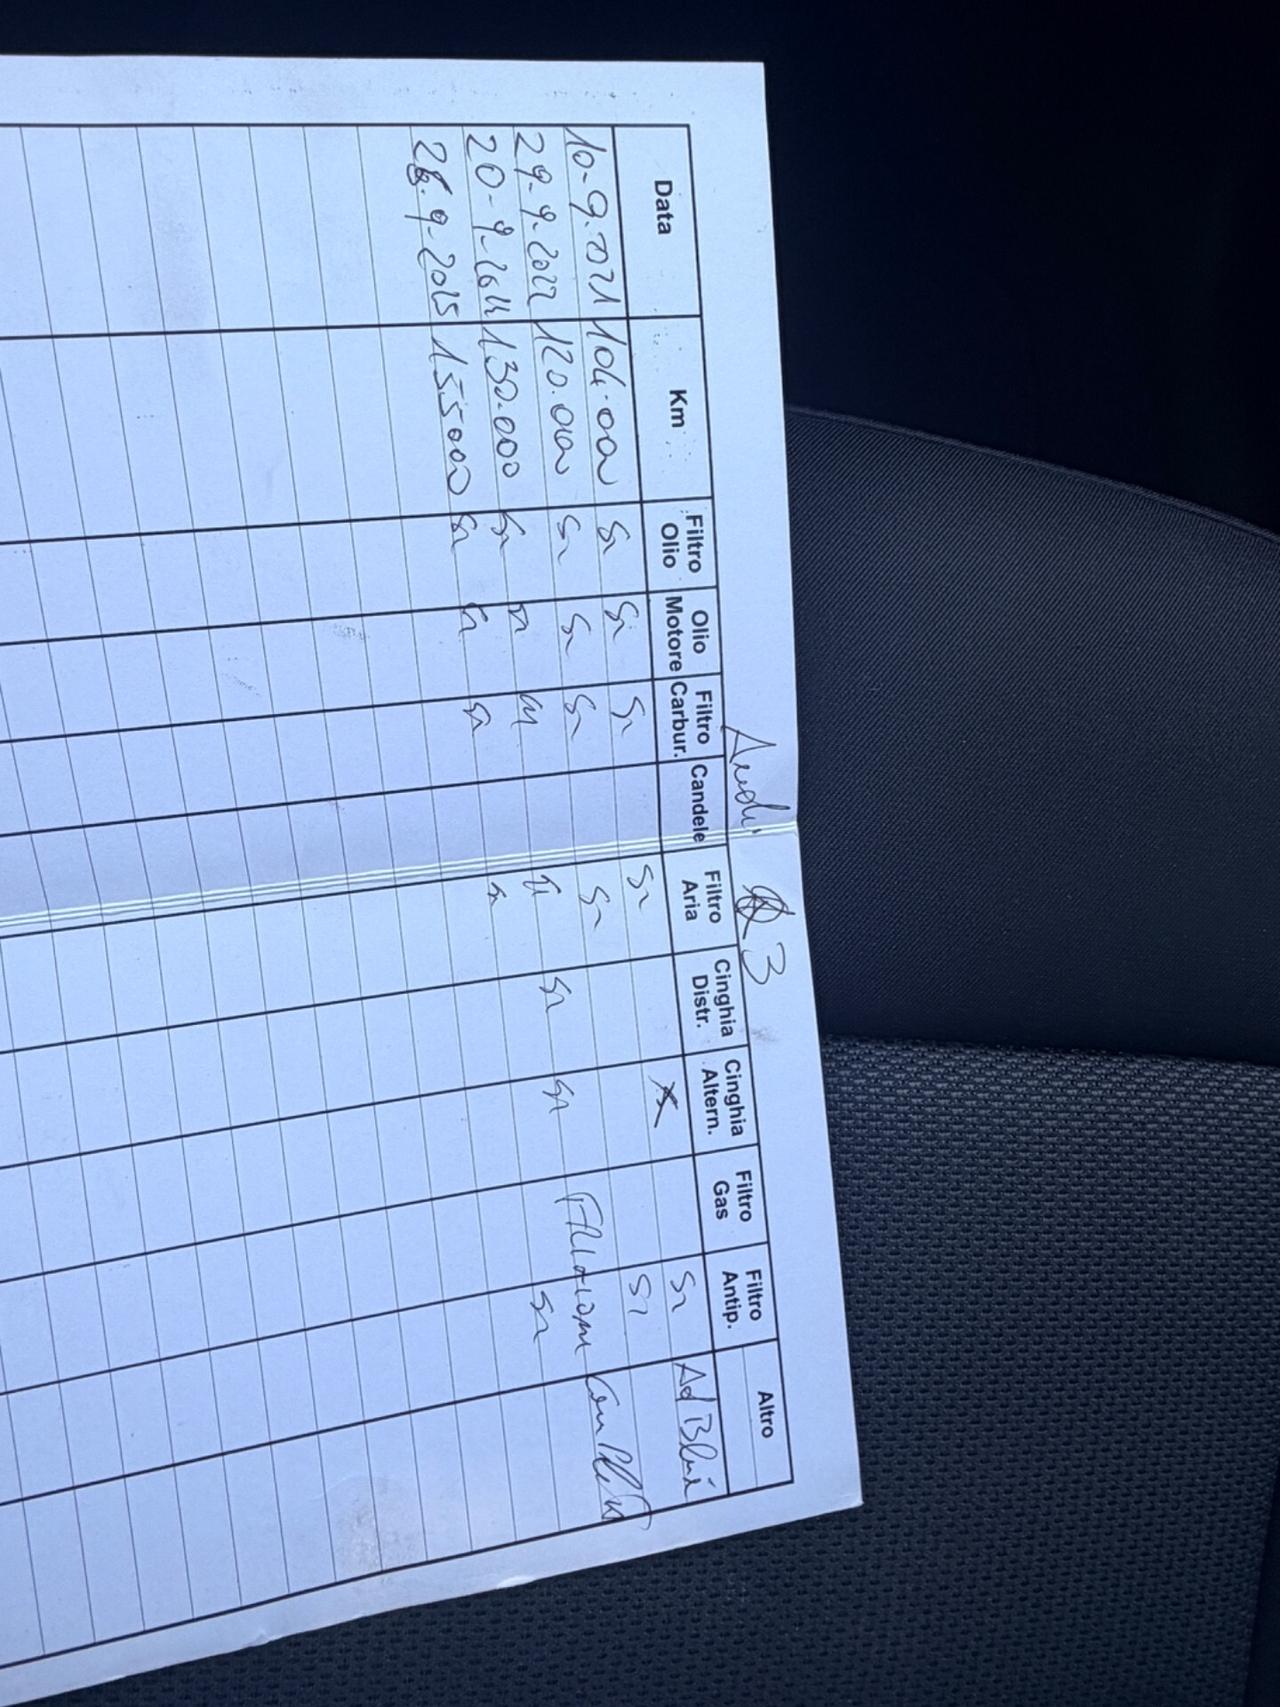 Audi Q 3
Data Km Filtro Olio Olio Motore Filtro Carbur. Candele Filtro Aria Cinghia Distr. Cinghia Altern. Filtro Gas Filtro Antip. Altro
10-9.2021 104.000 Si Si Si Si Si Ad Blue
29-9-2022 120.000 Si Si Si Si Si
20-9-2024 130.000 Si Si Si Si Si Si
28-9-2025 155000 Si Si Si Si Si